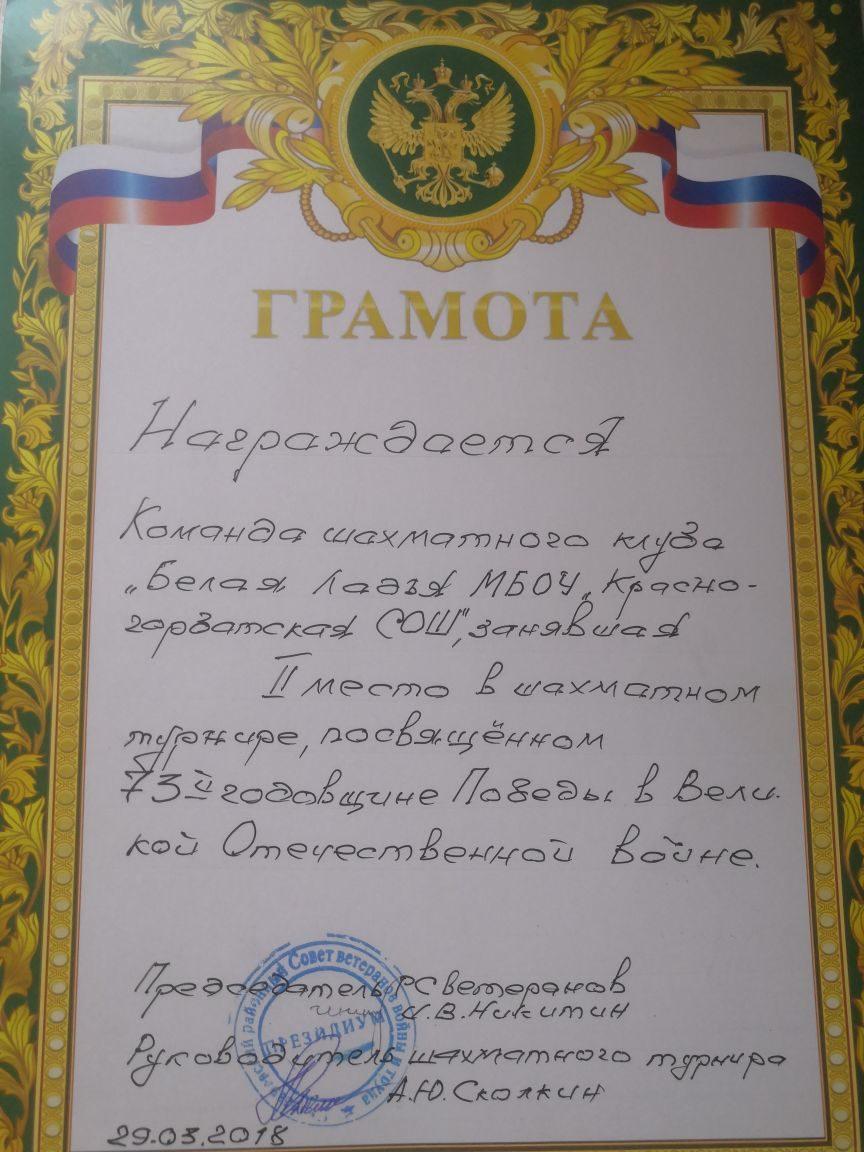 ГРАМОТА
Награждается
Команда шахматного клуба
„Белая Ладья МБОУ „Красно-
горбатская СОШ", занявшая
II место в шахматном
турнире, посвящённом
73й годовщине Победы в Вели-
кой Отечественной войне.
Председатель РСветеранов
И.В.Никитин
Руководитель шахматного турнира
А.Ю.Сколкин
29.03.2018
районный Совет ветеранов войны и труда
ПРЕЗИДИУМ